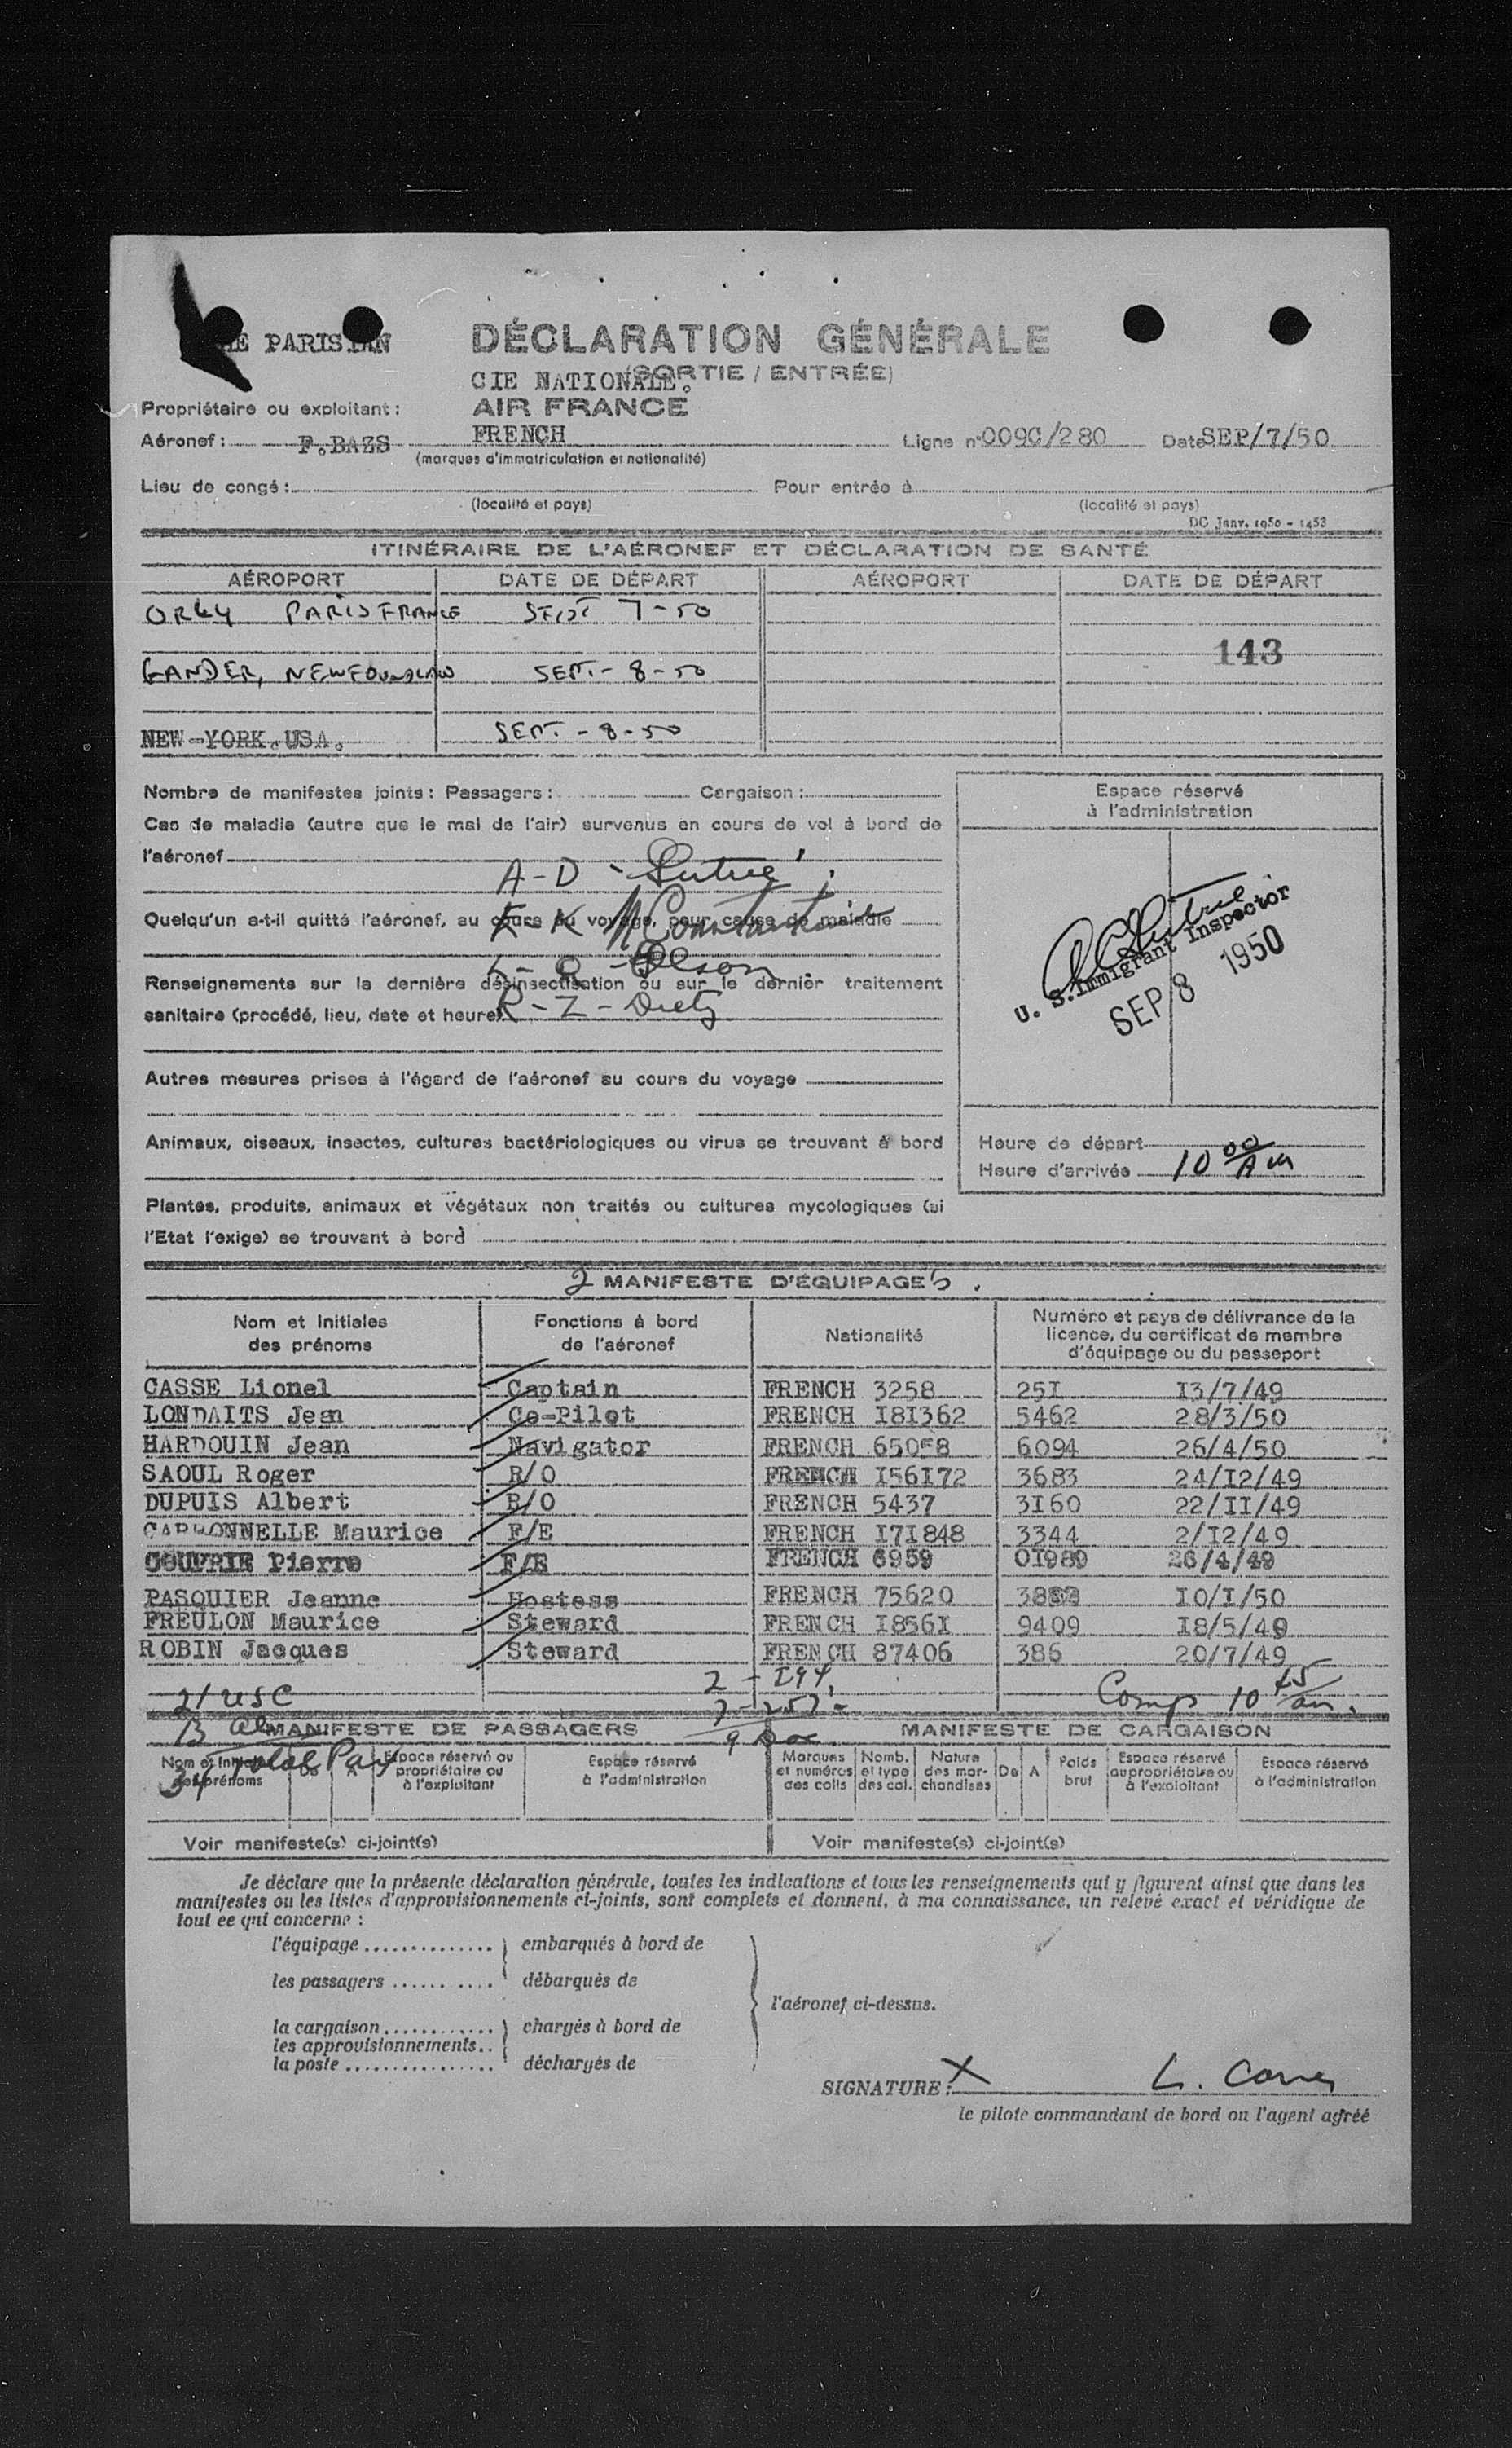 PARISIAN
DÉCLARATION GÉNÉRALE
(SORTIE / ENTRÉE)
CIE NATIONALE.
Propriétaire ou exploitant: AIR FRANCE
Aéronef: F.BAZS FRENCH Ligne n° 009C/280 Date SEP/7/50
(marques d'immatriculation et nationalité)
Lieu de congé: Pour entrée à
(localité et pays) (localité et pays)
DC Janv. 1950 - 1453
ITINÉRAIRE DE L'AÉRONEF ET DÉCLARATION DE SANTÉ
AÉROPORT DATE DE DÉPART AÉROPORT DATE DE DÉPART
ORLY PARIS FRANCE SEPT 7-50
143
GANDER, NEWFOUNDLAND SEPT.-8-50
NEW-YORK.USA. SEPT.-8-50
Nombre de manifestes joints: Passagers: Cargaison:
Cas de maladie (autre que le mal de l'air) survenus en cours de vol à bord de
l'aéronef
A-D-
Quelqu'un a-t-il quitté l'aéronef, au cours du voyage, pour cause de maladie
Olson
Renseignements sur la dernière désinsectisation ou sur le dernier traitement
sanitaire (procédé, lieu, date et heure) R-Z-Dietz
Autres mesures prises à l'égard de l'aéronef au cours du voyage
Animaux, oiseaux, insectes, cultures bactériologiques ou virus se trouvant à bord
Plantes, produits, animaux et végétaux non traités ou cultures mycologiques (si
l'Etat l'exige) se trouvant à bord
Espace réservé
à l'administration
U. S. Immigrant Inspector
SEP 8 1950
Heure de départ
Heure d'arrivée 10 00 AM
2 MANIFESTE D'ÉQUIPAGE 5.
Nom et Initiales
des prénoms
Fonctions à bord
de l'aéronef
Nationalité
Numéro et pays de délivrance de la
licence, du certificat de membre
d'équipage ou du passeport
CASSE Lionel Captain FRENCH 3258 25I I3/7/49
LONDAITS Jean Co-Pilot FRENCH I8I362 5462 28/3/50
HARDOUIN Jean Navigator FRENCH 65058 6094 26/4/50
SAOUL Roger R/O FRENCH I56I72 3683 24/I2/49
DUPUIS Albert R/O FRENCH 5437 3I60 22/II/49
CARBONNELLE Maurice F/E FRENCH I7I848 3344 2/I2/49
COUPRIE Pierre F/E FRENCH 6959 0I989 26/4/49
PASQUIER Jeanne Hostess FRENCH 75620 I0/I/50
FREULON Maurice Steward FRENCH I856I 9409 I8/5/49
ROBIN Jacques Steward FRENCH 87406 386 20/7/49
2 - I94
21 USC 7-257- Comp 10 45 am.
13 al 9 Doc
34 Total Pax
MANIFESTE DE PASSAGERS MANIFESTE DE CARGAISON
Nom et Initiales
des prénoms
De
A
Espace réservé au
propriétaire ou
à l'exploitant
Espace réservé
à l'administration
Marques
et numéros
des colis
Nomb.
et type
des col.
Nature
des mar-
chandises
De
A
Poids
brut
Espace réservé
au propriétaire ou
à l'exploitant
Espace réservé
à l'administration
Voir manifeste(s) ci-joint(s) Voir manifeste(s) ci-joint(s)
Je déclare que la présente déclaration générale, toutes les indications et tous les renseignements qui y figurent ainsi que dans les
manifestes ou les listes d'approvisionnements ci-joints, sont complets et donnent, à ma connaissance, un relevé exact et véridique de
tout ce qui concerne :
l'équipage .............. embarqués à bord de
les passagers .......... débarqués de
l'aéronef ci-dessus.
la cargaison ............ chargés à bord de
les approvisionnements..
la poste ................ déchargés de
SIGNATURE: X
le pilote commandant de bord ou l'agent agréé